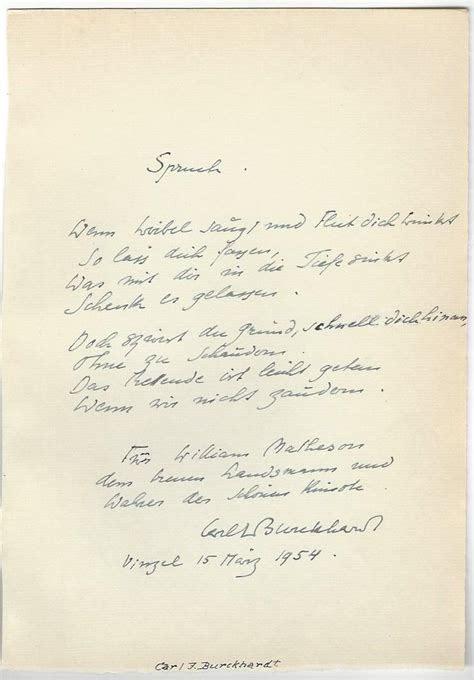 Spruch.
Wenn Wirbel saugt und Flut dich
So lass dich fassen,
Was mit dir in die Tiefe sinkt
Schenk es gelassen.
Doch spürst du Grund, schnell dich hinan,
Ohne zu schaudern.
Das Rettende ist leicht getan
Wenn wir nicht zaudern.
Für William Matheson
dem treuen Landsmann und
Wahrer des schönen
Carl J Burckhardt
Vinzel 15 März 1954.
Carl J. Burckhardt